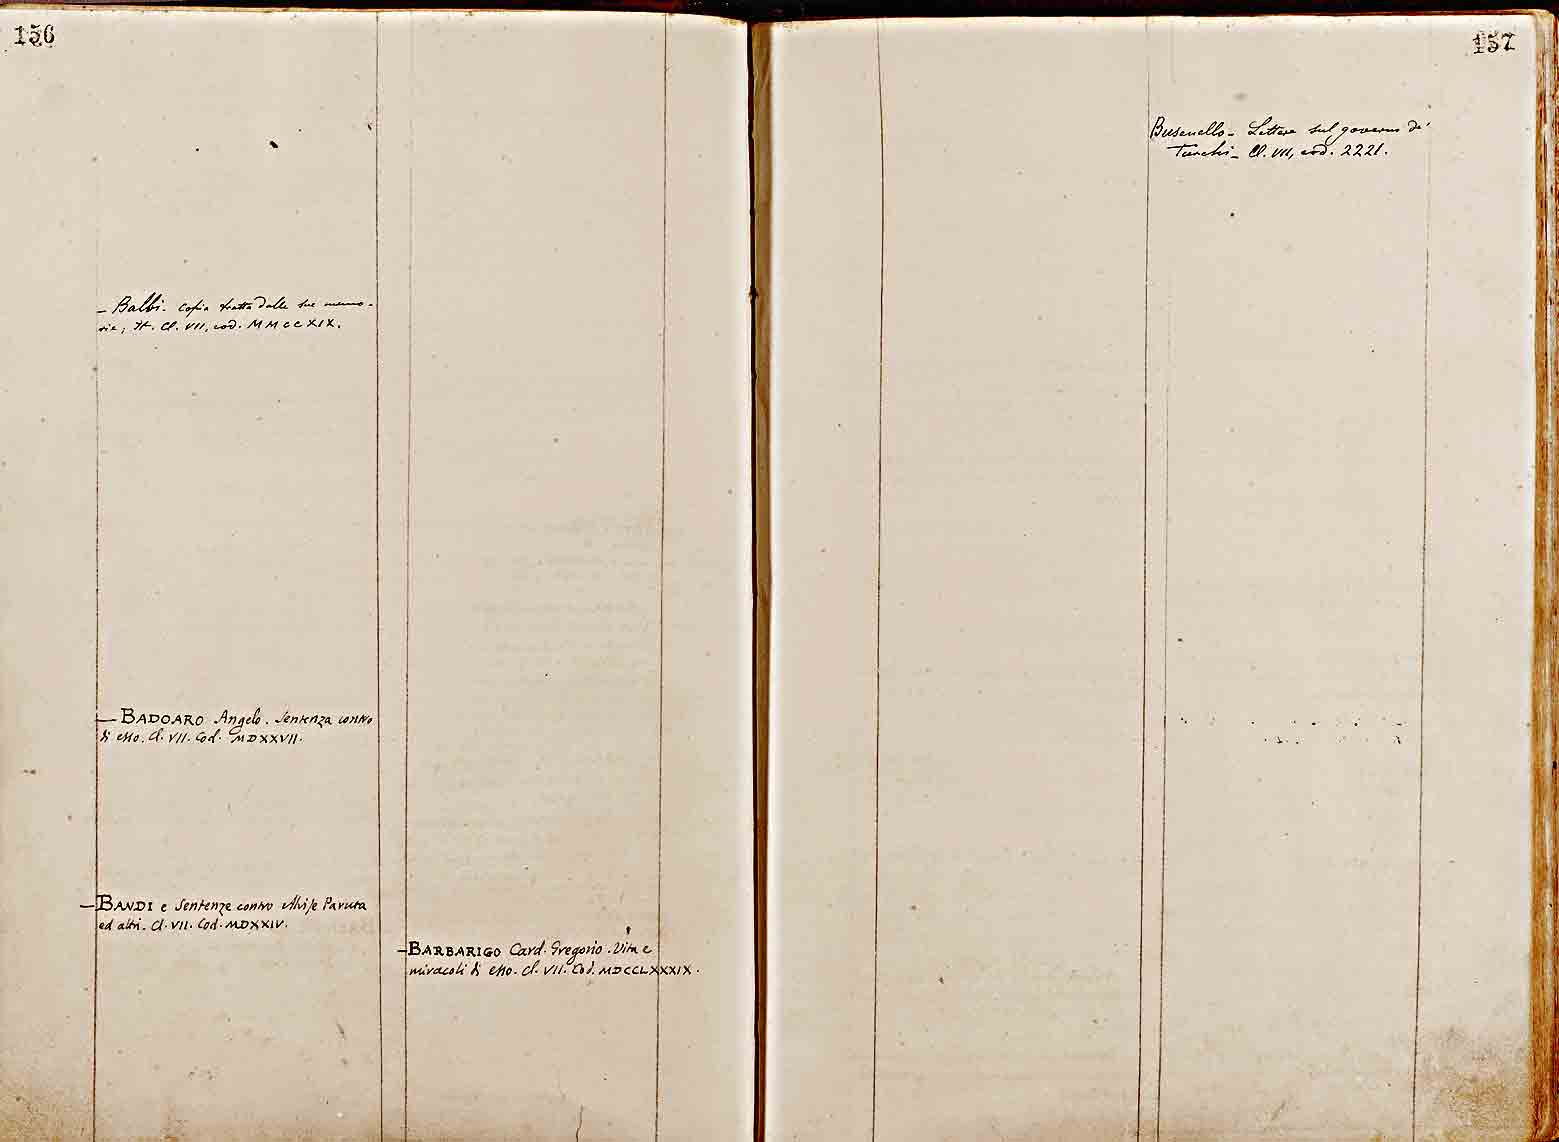 156
— Balbi. Copia tratta dalle sue memo-
rie; It. Cl. VII, cod. MMCCXIX.
— BADOARO Angelo. Sentenza contro
di esso. Cl. VII. Cod. MDXXVII.
— BANDI e Sentenze contro Alvise Paruta
ed altri. Cl. VII. Cod. MDXXIV.
— BARBARIGO Card. Gregorio. Vita e
miracoli di esso. Cl. VII. Cod. MDCCLXXXIX.
157
Busenello - Lettere sul governo de'
Turchi - Cl. VII, cod. 2221.